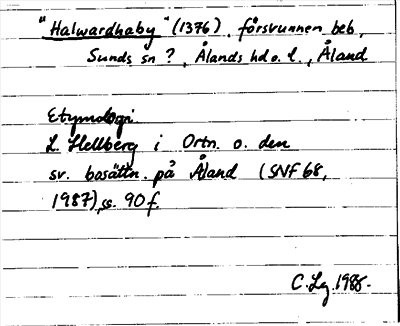 "Halwardhaby" (1376), försvunnen beb,
Sunds sn ?, Ålands hd o. l., Åland
Etymologi
L. Hellberg i Ortn. o. den
sv. bosättn. på Åland (SNF 68,
1987), ss. 90 f.
C. Lg. 1988.